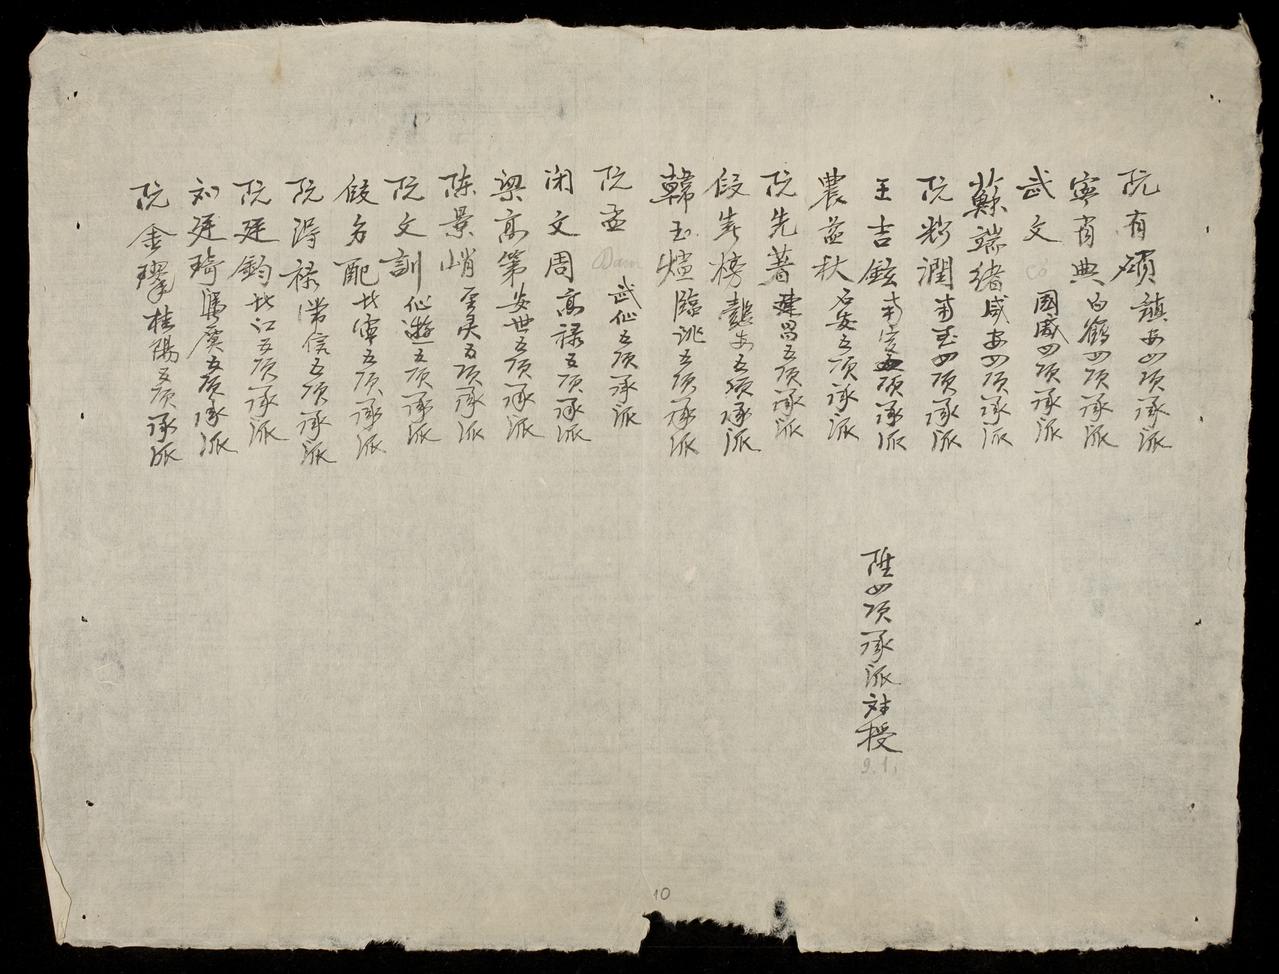 阮有碩鎮安四項承派
寧肯典白鶴四項承派
武文
có
國威四項承派
蘇端緒咸安四項承派
阮粉潤甫玉四項承派
王吉鉉甫定項承派
陞四項承派対授
9.1.
農益秋石安五項承派
阮先著建昌五項承派
段榜五項承派
韓玉臨洮五項承派
阮孟
Dam
武仙五項承派
闲文周高禄五項承派
梁高第安世五項承派
陈景五項承派
阮文訓仙遊五項承派
段名配五項承派
阮淂禄常信五項承派
阮廷鈞北江五項承派
刘廷琦五項承派
阮金桂陽五項承派
10